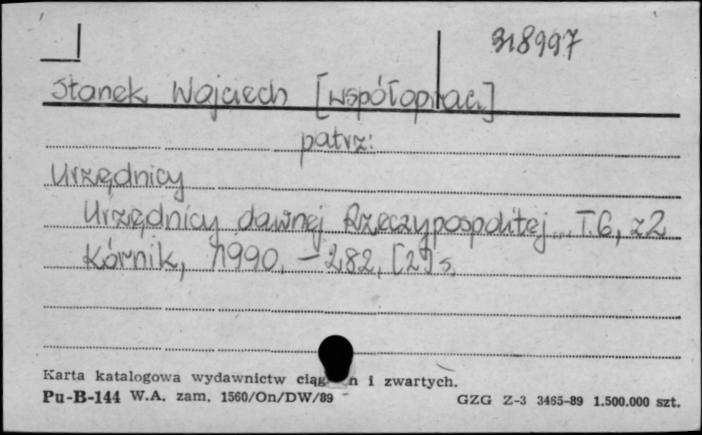 318997
Stanek Wojciech [współoprac.]
patrz:
Urzędnicy
Urzędnicy dawnej Rzeczypospolitej... T.6, z2
Kórnik, 1990. – 282, [2] s.
Karta katalogowa wydawnictw ciąg n i zwartych.
Pu-B-144 W.A. zam. 1560/On/DW/89 GZG Z-3 3465-89 1.500.000 szt.